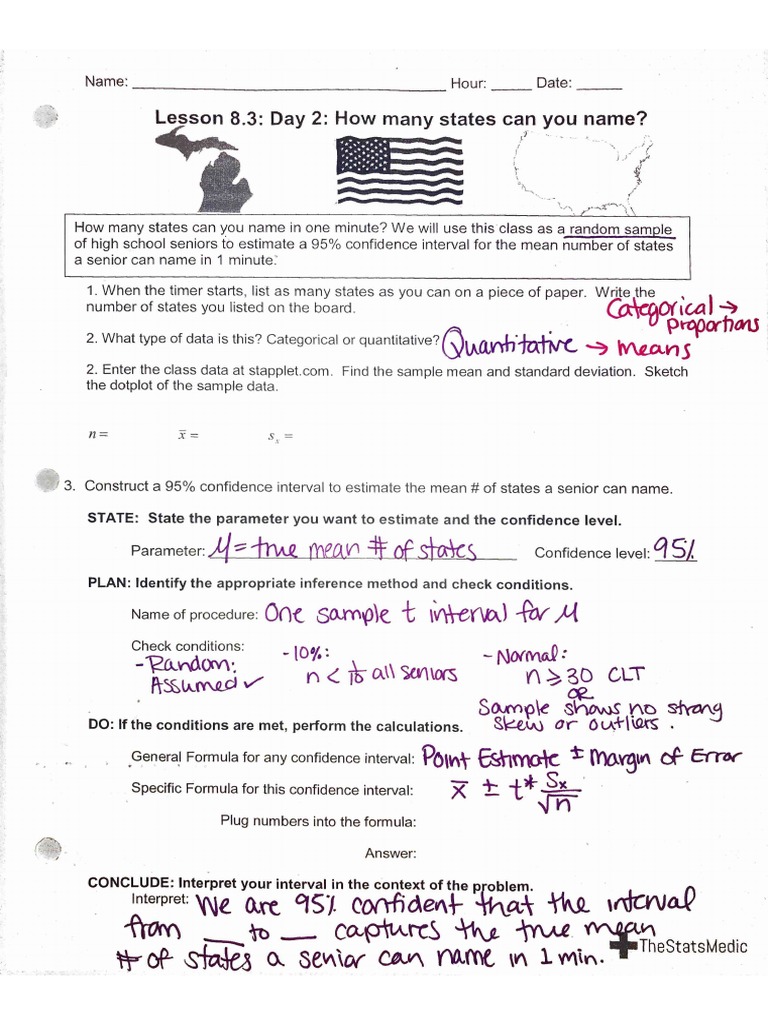 Name: ______ Hour: _____ Date: _____
Lesson 8.3: Day 2: How many states can you name?
How many states can you name in one minute? We will use this class as a random sample
of high school seniors to estimate a 95% confidence interval for the mean number of states
a senior can name in 1 minute.
1. When the timer starts, list as many states as you can on a piece of paper. Write the
number of states you listed on the board.
Categorical → proportions
2. What type of data is this? Categorical or quantitative? Quantitative → means
2. Enter the class data at stapplet.com. Find the sample mean and standard deviation. Sketch
the dotplot of the sample data.
n = x̄ = sₓ =
3. Construct a 95% confidence interval to estimate the mean # of states a senior can name.
STATE: State the parameter you want to estimate and the confidence level.
Parameter: μ = true mean # of states Confidence level: 95%
PLAN: Identify the appropriate inference method and check conditions.
Name of procedure: One sample t interval for μ
Check conditions:
- Random:
Assumed ✓
- 10%:
n < 1/10 all seniors
- Normal:
n ≥ 30 CLT
OR
Sample shows no strong
skew or outliers.
DO: If the conditions are met, perform the calculations.
General Formula for any confidence interval: Point Estimate ± Margin of Error
Specific Formula for this confidence interval: x̄ ± t* Sx/√n
Plug numbers into the formula:
Answer:
CONCLUDE: Interpret your interval in the context of the problem.
Interpret: We are 95% confident that the interval
from ___ to ___ captures the true mean
# of states a senior can name in 1 min.
TheStatsMedic